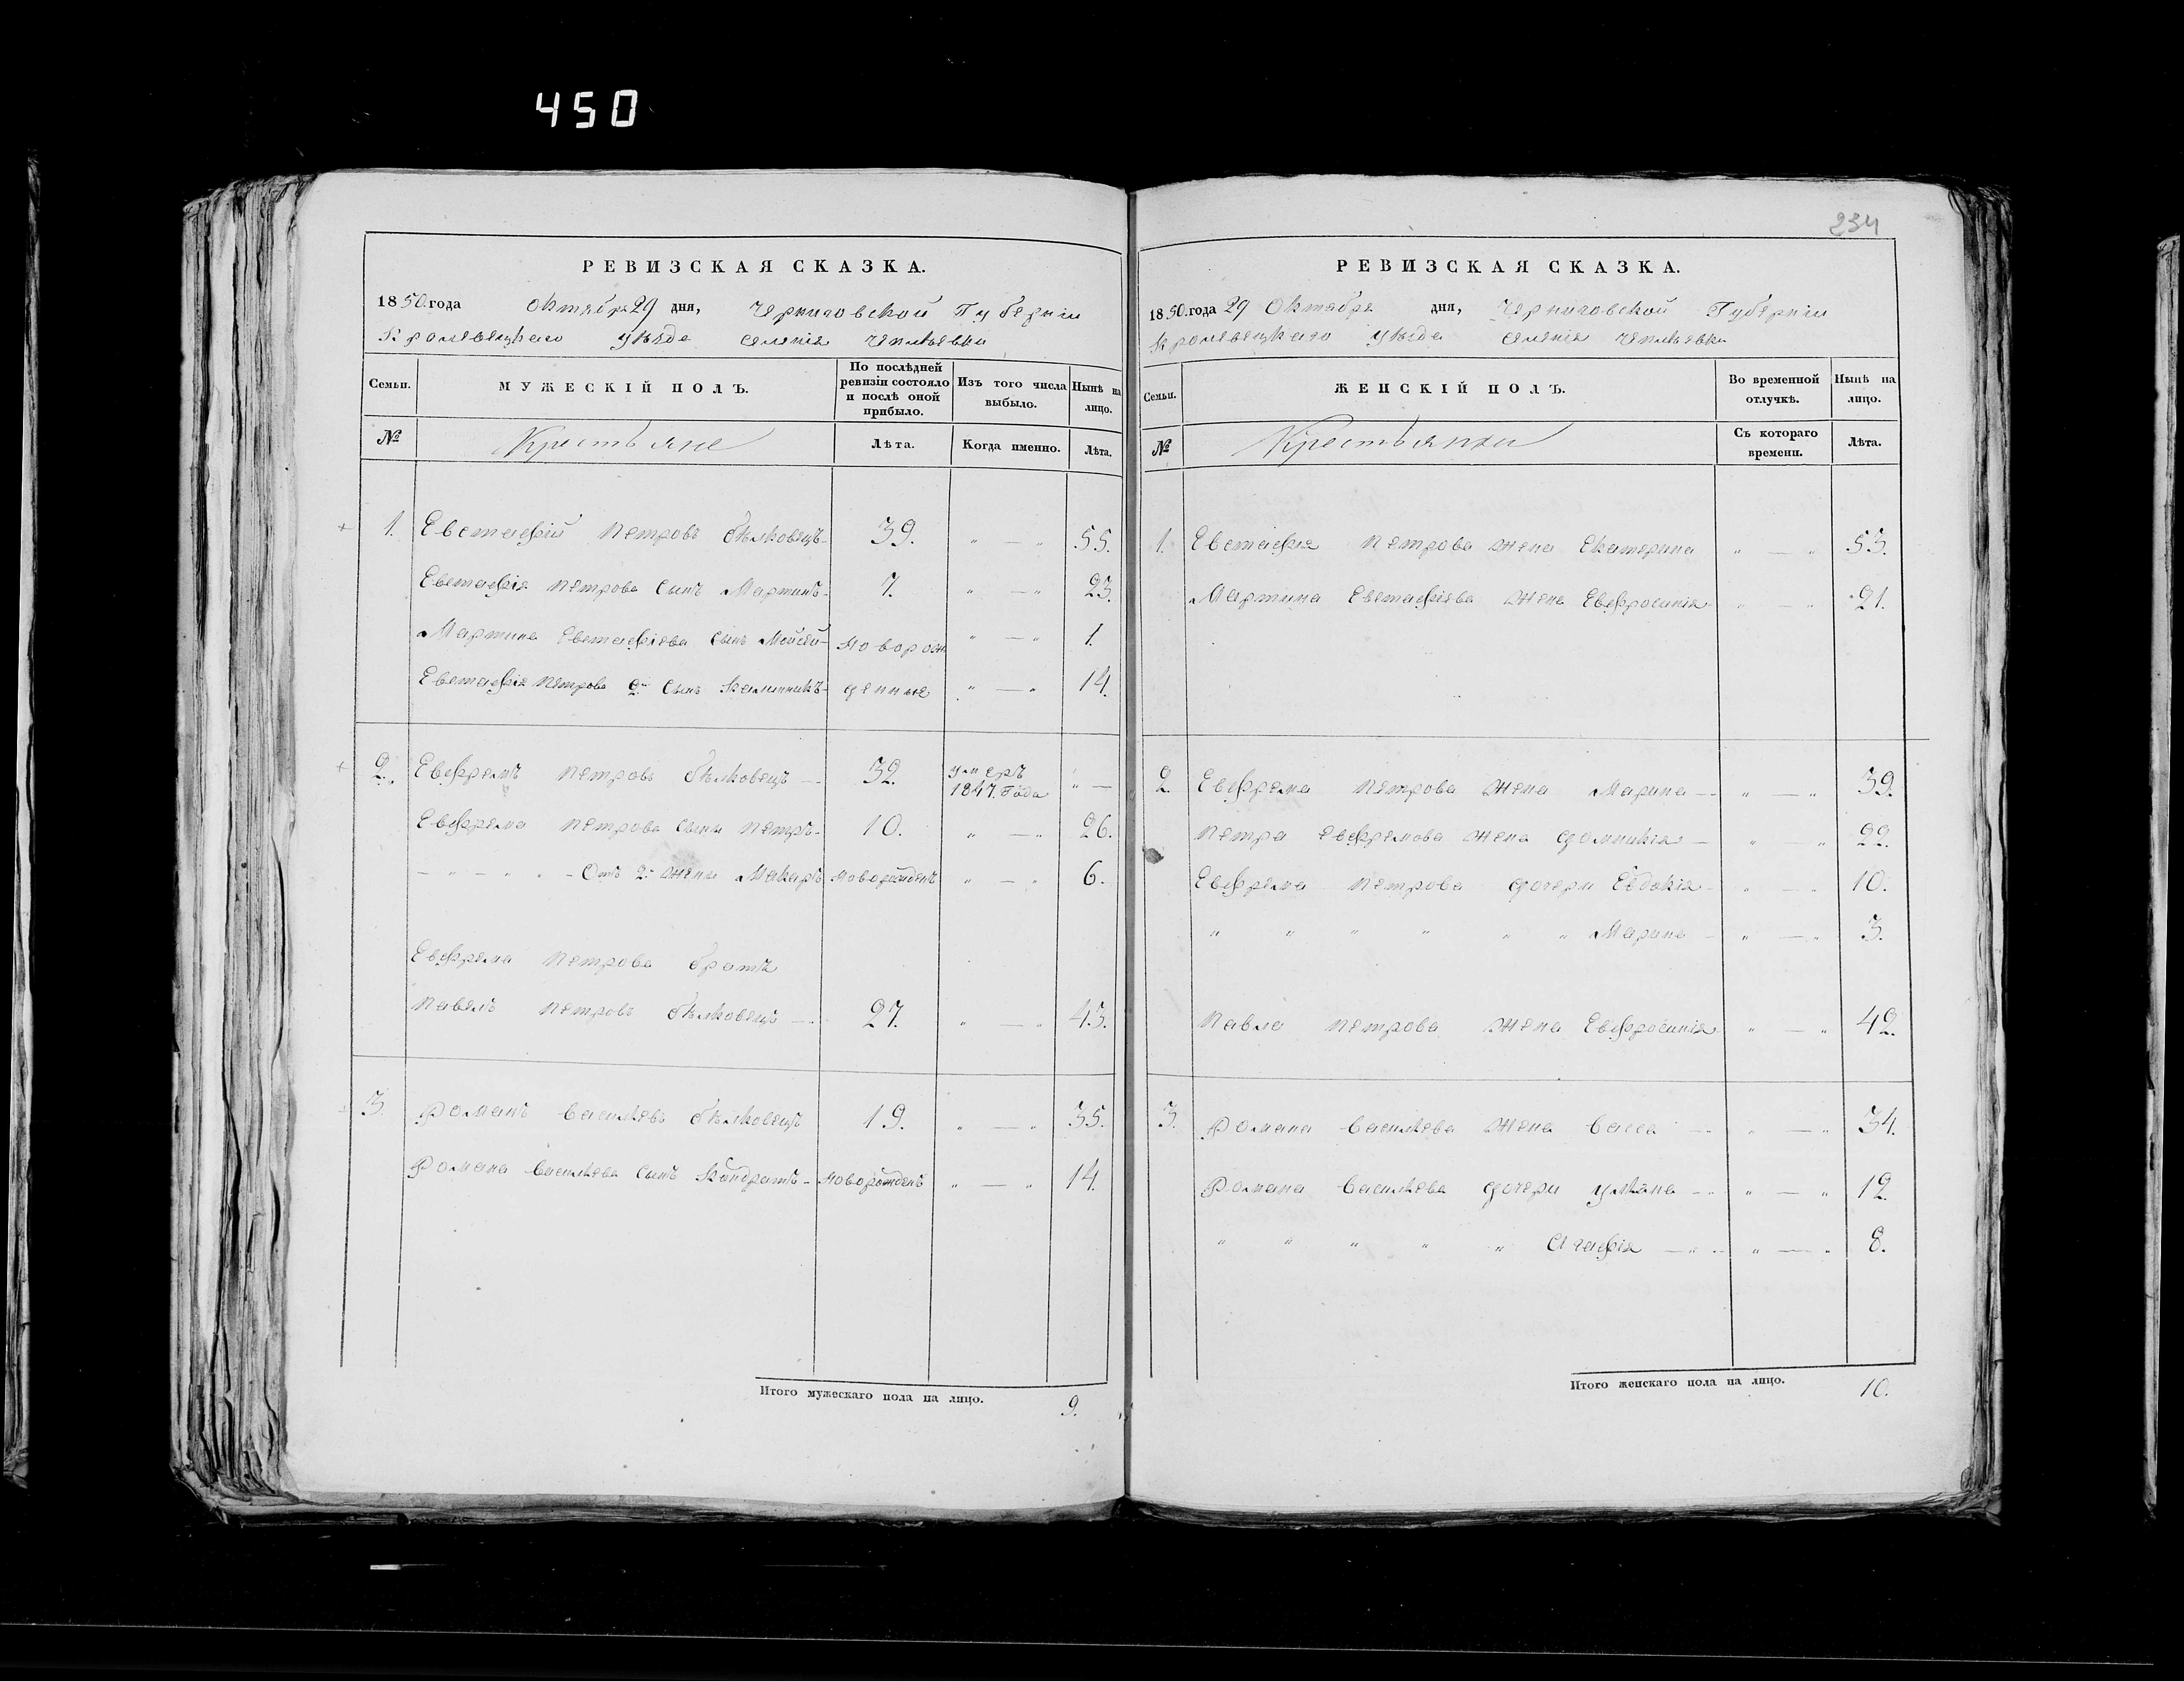 450
РЕВИЗСКАЯ СКАЗКА.
1850. года Октября 29 дня, Черниговской Губернiи
Кролевецкаго уѣзда селенiя
Семьи.
МУЖЕСКІЙ ПОЛЪ.
По послѣдней ревизіи состояло и послѣ оной прибыло.
Изъ того числа выбыло.
Нынѣ на лицо.
№
Крестьяне
Лѣта.
Когда именно.
Лѣта.
1. Евстафій Петровъ Бѣлковецъ 39. " — " 55.
Евстафія Петрова сынъ Мартинъ 7. " — " 23.
Мартина Евстафіева сынъ Мойсей новорож " — " 1
Евстафія Петрова 2й сынъ Калинникъ денные " — " 14.
2. Евфремъ Петровъ Бѣлковецъ — 32. умеръ 1847. Года " —
Евфрема Петрова сыны Петръ 10. " — " 26.
— " — " — " — Отъ 2й жены Макаръ новорожденъ " — " 6.
Евфрема Петрова братъ
Павелъ Петровъ Бѣлковецъ — 27. " — " 43.
3. Романъ Васильевъ Бѣлковецъ 19. " — " 35.
Романа Васильева сынъ Кондратъ новорожденъ " — " 14.
Итого мужескаго пола на лицо. 9.
234
РЕВИЗСКАЯ СКАЗКА.
1850. года 29 Октября дня, Черниговской Губернiи
Кролевецкаго уѣзда селенiя
Семьи.
ЖЕНСКІЙ ПОЛЪ.
Во временной отлучкѣ.
Нынѣ на лицо.
№
Крестьянки
Съ котораго времени.
Лѣта.
1. Евстафія Петрова жена Екатерина " — " 53.
Мартина Евстафіева жена Евфросинія " — " 21.
2. Евфрема Петрова жена Марина — " — " 39.
Петра Евфремова жена Домникія — " — " 22.
Евфрема Петрова дочери Евдокія " — " 10.
" " " " " " Марина — " — " 3.
Павла Петрова жена Евфросинія " — " 42.
3. Романа Васильева жена Васса — " — " 34.
Романа Васильева дочери Ульяна — " — " 12.
" " " " " Агафія — " — " 8.
Итого женскаго пола на лицо. 10.